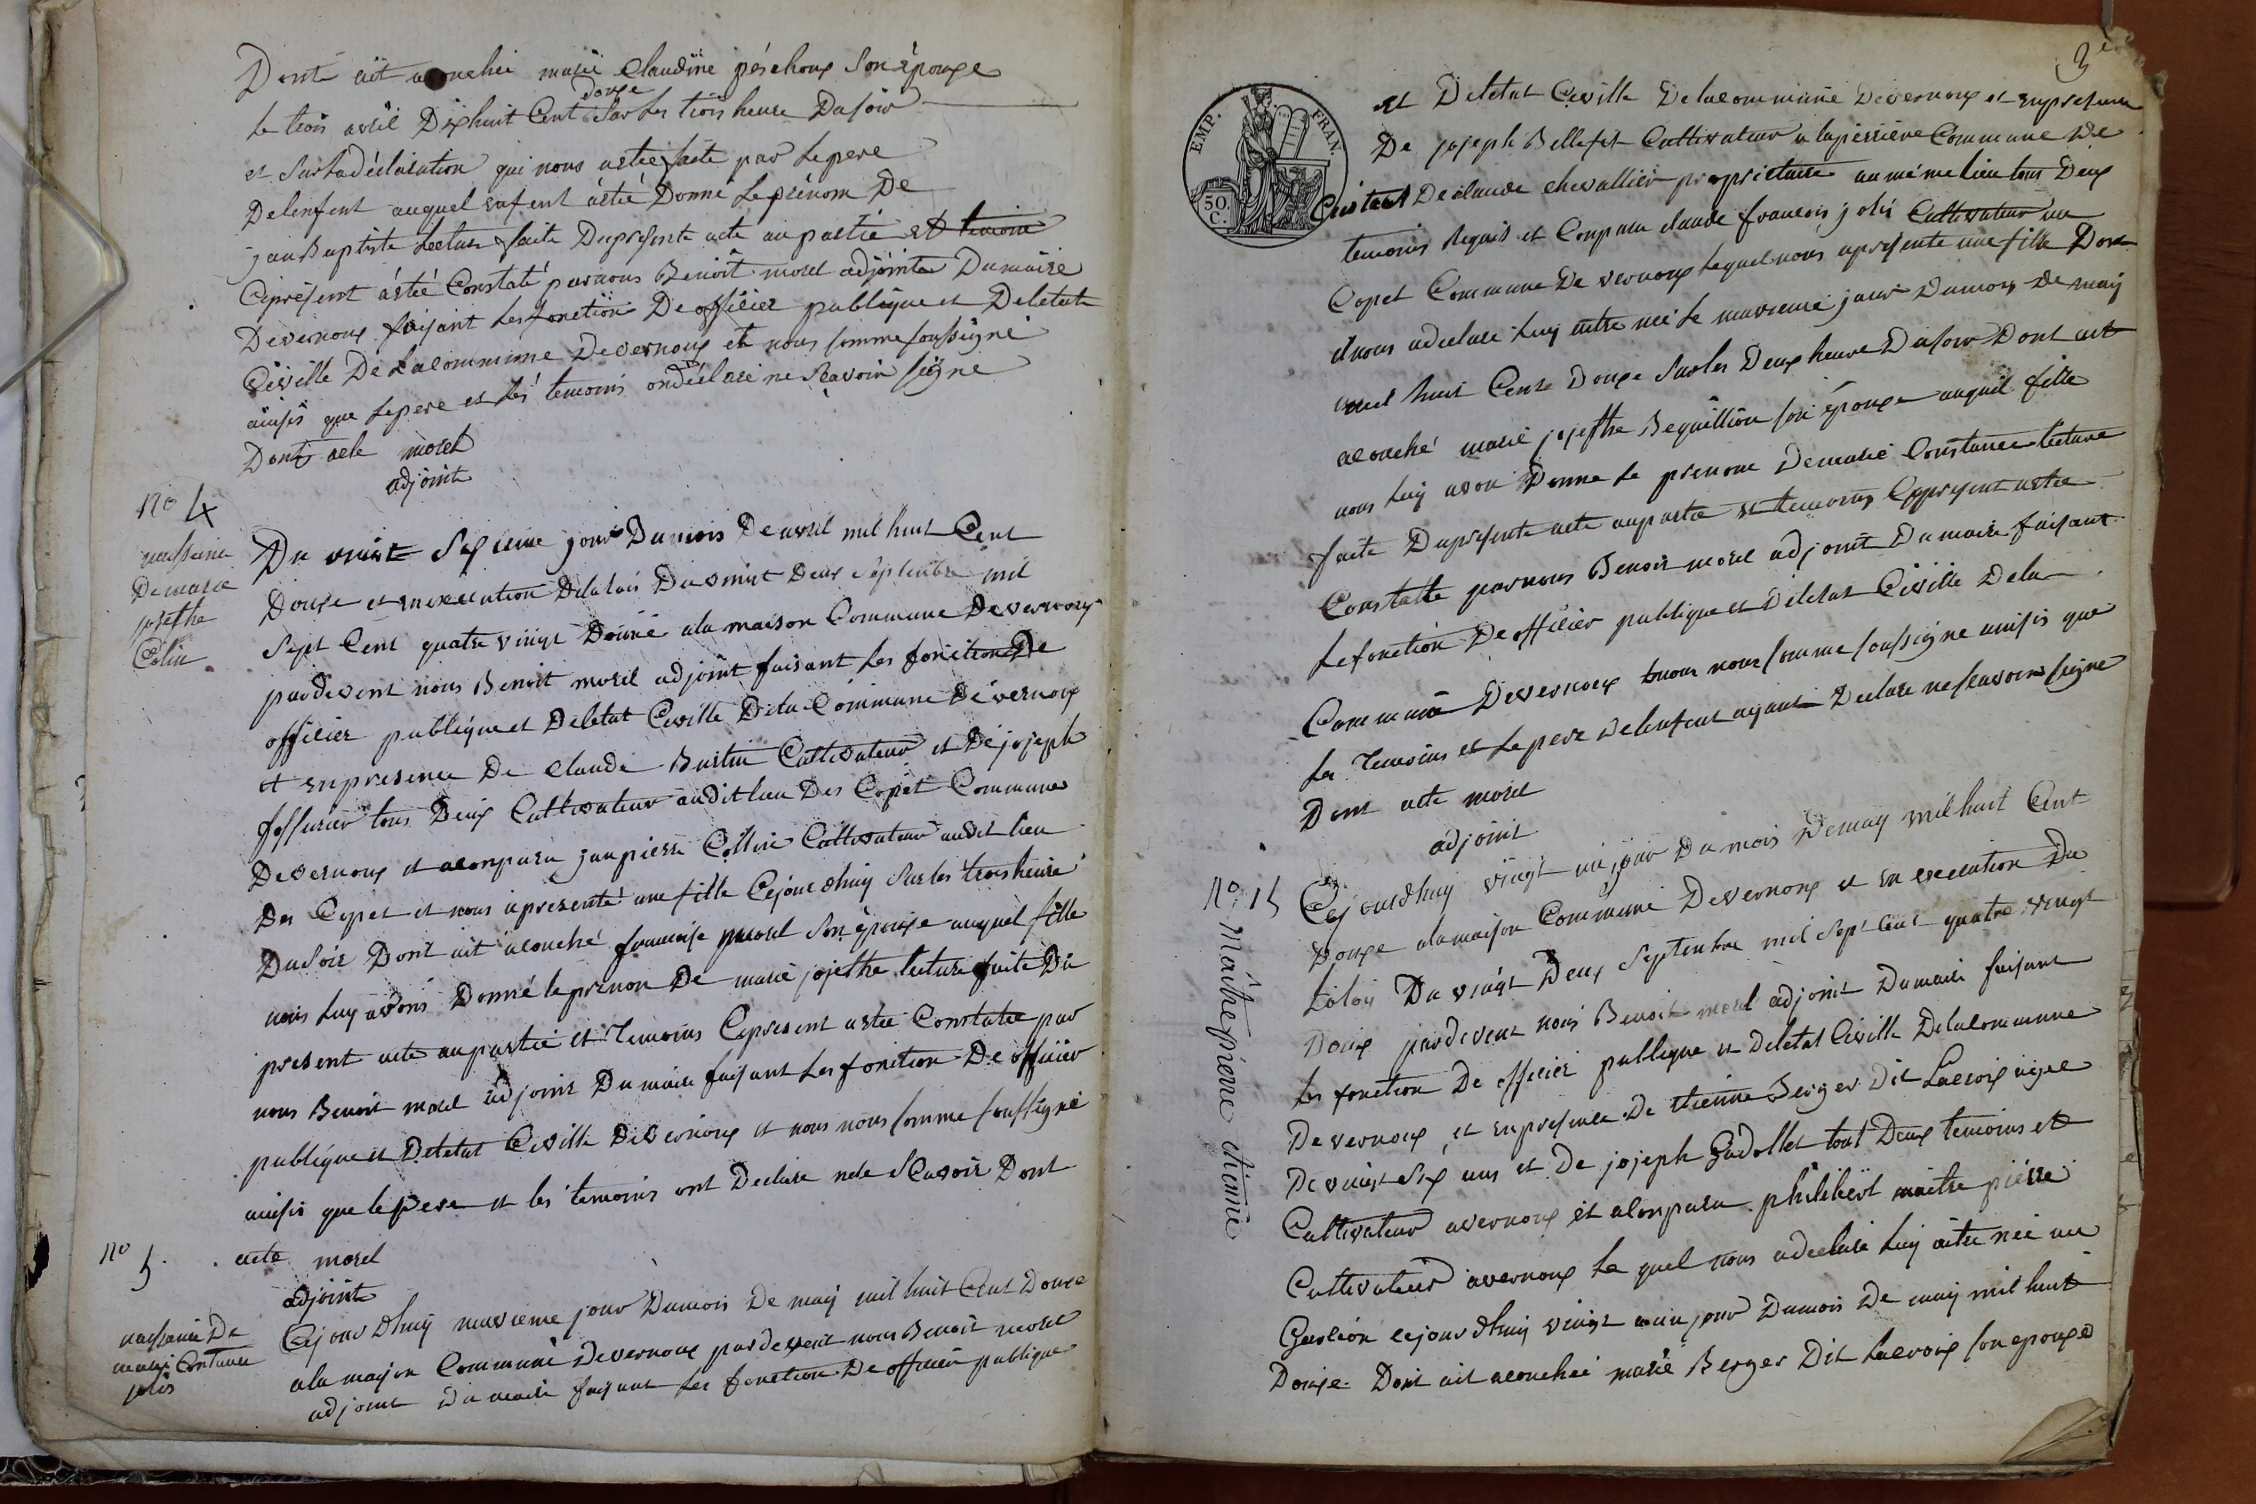 Dont ait acouchéé marie Claudine péschoux Son épouse
Le trois avril Dix huit Cent douze Sur les trois heure Dusoir
et Surladéclaration qui nous astée faite par Lepere
Delenfent auquel enfent astée Donné Le prénom De
jean Baptiste Lecture faite Duprésente acte au partie et temoin
Ceprésent astée Constaté parnous Benoit morel adjointe Dumaire
Devernoux faisant Les fonction De officier publique et Deletat
Civille De Lacommune Devernoux et nous somme soussigné
ainsis que Lepere et Les temoins on déclaré ne Scavoir signe
Dont acte morel
adjoint
No 4
naissance
De marie
josephe
Colin
Du vint Sixieme jour Dumois De avril mil huit Cent
Douze et en execution Delalois Du vint Deux Septembre mil
Sept Cent quatre vingt Douze ala maison Commune Devernoux
pardevent nous Benoit morel adjoint faisant Les fonction De
officier publique et Deletat Civille Dela Commune Devernoux
et enpresence De Claude Bastin Cultivateur et De joseph
tous Deux Cultivateur audit lieu Des Copet Commune
Devernoux et aconparu jeanpierre Colline Cultivateur audit lieu
Des Copet et nous apresenté une fille Cejourdhuy Sur les trois heure
Dusoir Dont ait acouché francoise morel Son épouse auquel fille
nous Luy avons Donné le prénon De marie josephe lecture faite Du
présent acte aupartie et Temoins Cepresent astée Constatée par
nous Benoit morel adjoint Du maire faisant Les fonction De officier
publique et Deletat Civille Devernoux et nous nous somme soussigné
ainsis que lepere et les temoins ont Declaré nele Scavoir Dont
acte morel
adjointe
No 5
naissance De
marie Constance
jolis
Cejour dhuy neuvieme jour Dumois De may mil huit Cent Douze
ala maison Commune Devernoux pardevent nous Benoit morel
adjoint Du maire faisant Les fonction De officier publique
3e
EMP. FRAN.
50 C.
et Deletat Civille Delacommune Devernoux et enpresence
De joseph Bellefet Cultivateur a laperriere Commune De
Cuiseaux De claude chevallier propriétaire au même lieu tous Deux
temoins Requis et Conparu claude francois jolis Cultivateur au
Copet Commune De vernoux Lequel nous apresente une fille Dont
il nous adeclaré Luy aitre née Le neuvieme jour Dumois De may
mil huit Cent Douze Sur les Deux heure Dusoir Dont ait
acouché marie josephe Beguillion son épouse auquel fille
nous Luy avon Donne Le prenom Demarie Constance lecture
faite Dupresente acte aupartie et temoins Cepresent astée
Constatte parnous Benoit morel adjoint Dumaire faisant
Lefonction De officier publique et Deletat Civille Dela
Commune Devernoux nous nous somme soussigne ainsis que
Les Temoins et Lepere Delenfent ayant Declaré nescavoir signe
Dont acte morel
adjoint
No 15
Maitrepierre etienne
Cejourdhuy vingt un jour Du mois Demay mil huit Cent
Douze alamaison Commune Devernoux et en execution Du
Laloy Du vingt Deux Septembre mil Sept Cent quatre vingt
Douze pardevent nous Benoit morel adjoint Dumaire faisant
Les fonction De officier publique et Deletat Civille Delacommune
Devernoux et enpresence De etienne Berger Dit Lacroix agee
De vingt Six ans et De joseph Gadollet tout Deux temoins et
Cultivateur avernoux et aConparu philibert maitre pierre
Cultivateur avernoux Le quel nous adeclaré Luy aitre née un
Garcion cejour dhuy vingt un jour Dumois De may mil huit
Douze Dont ait acouchéé marie Berger Dit Lacroix son epouse